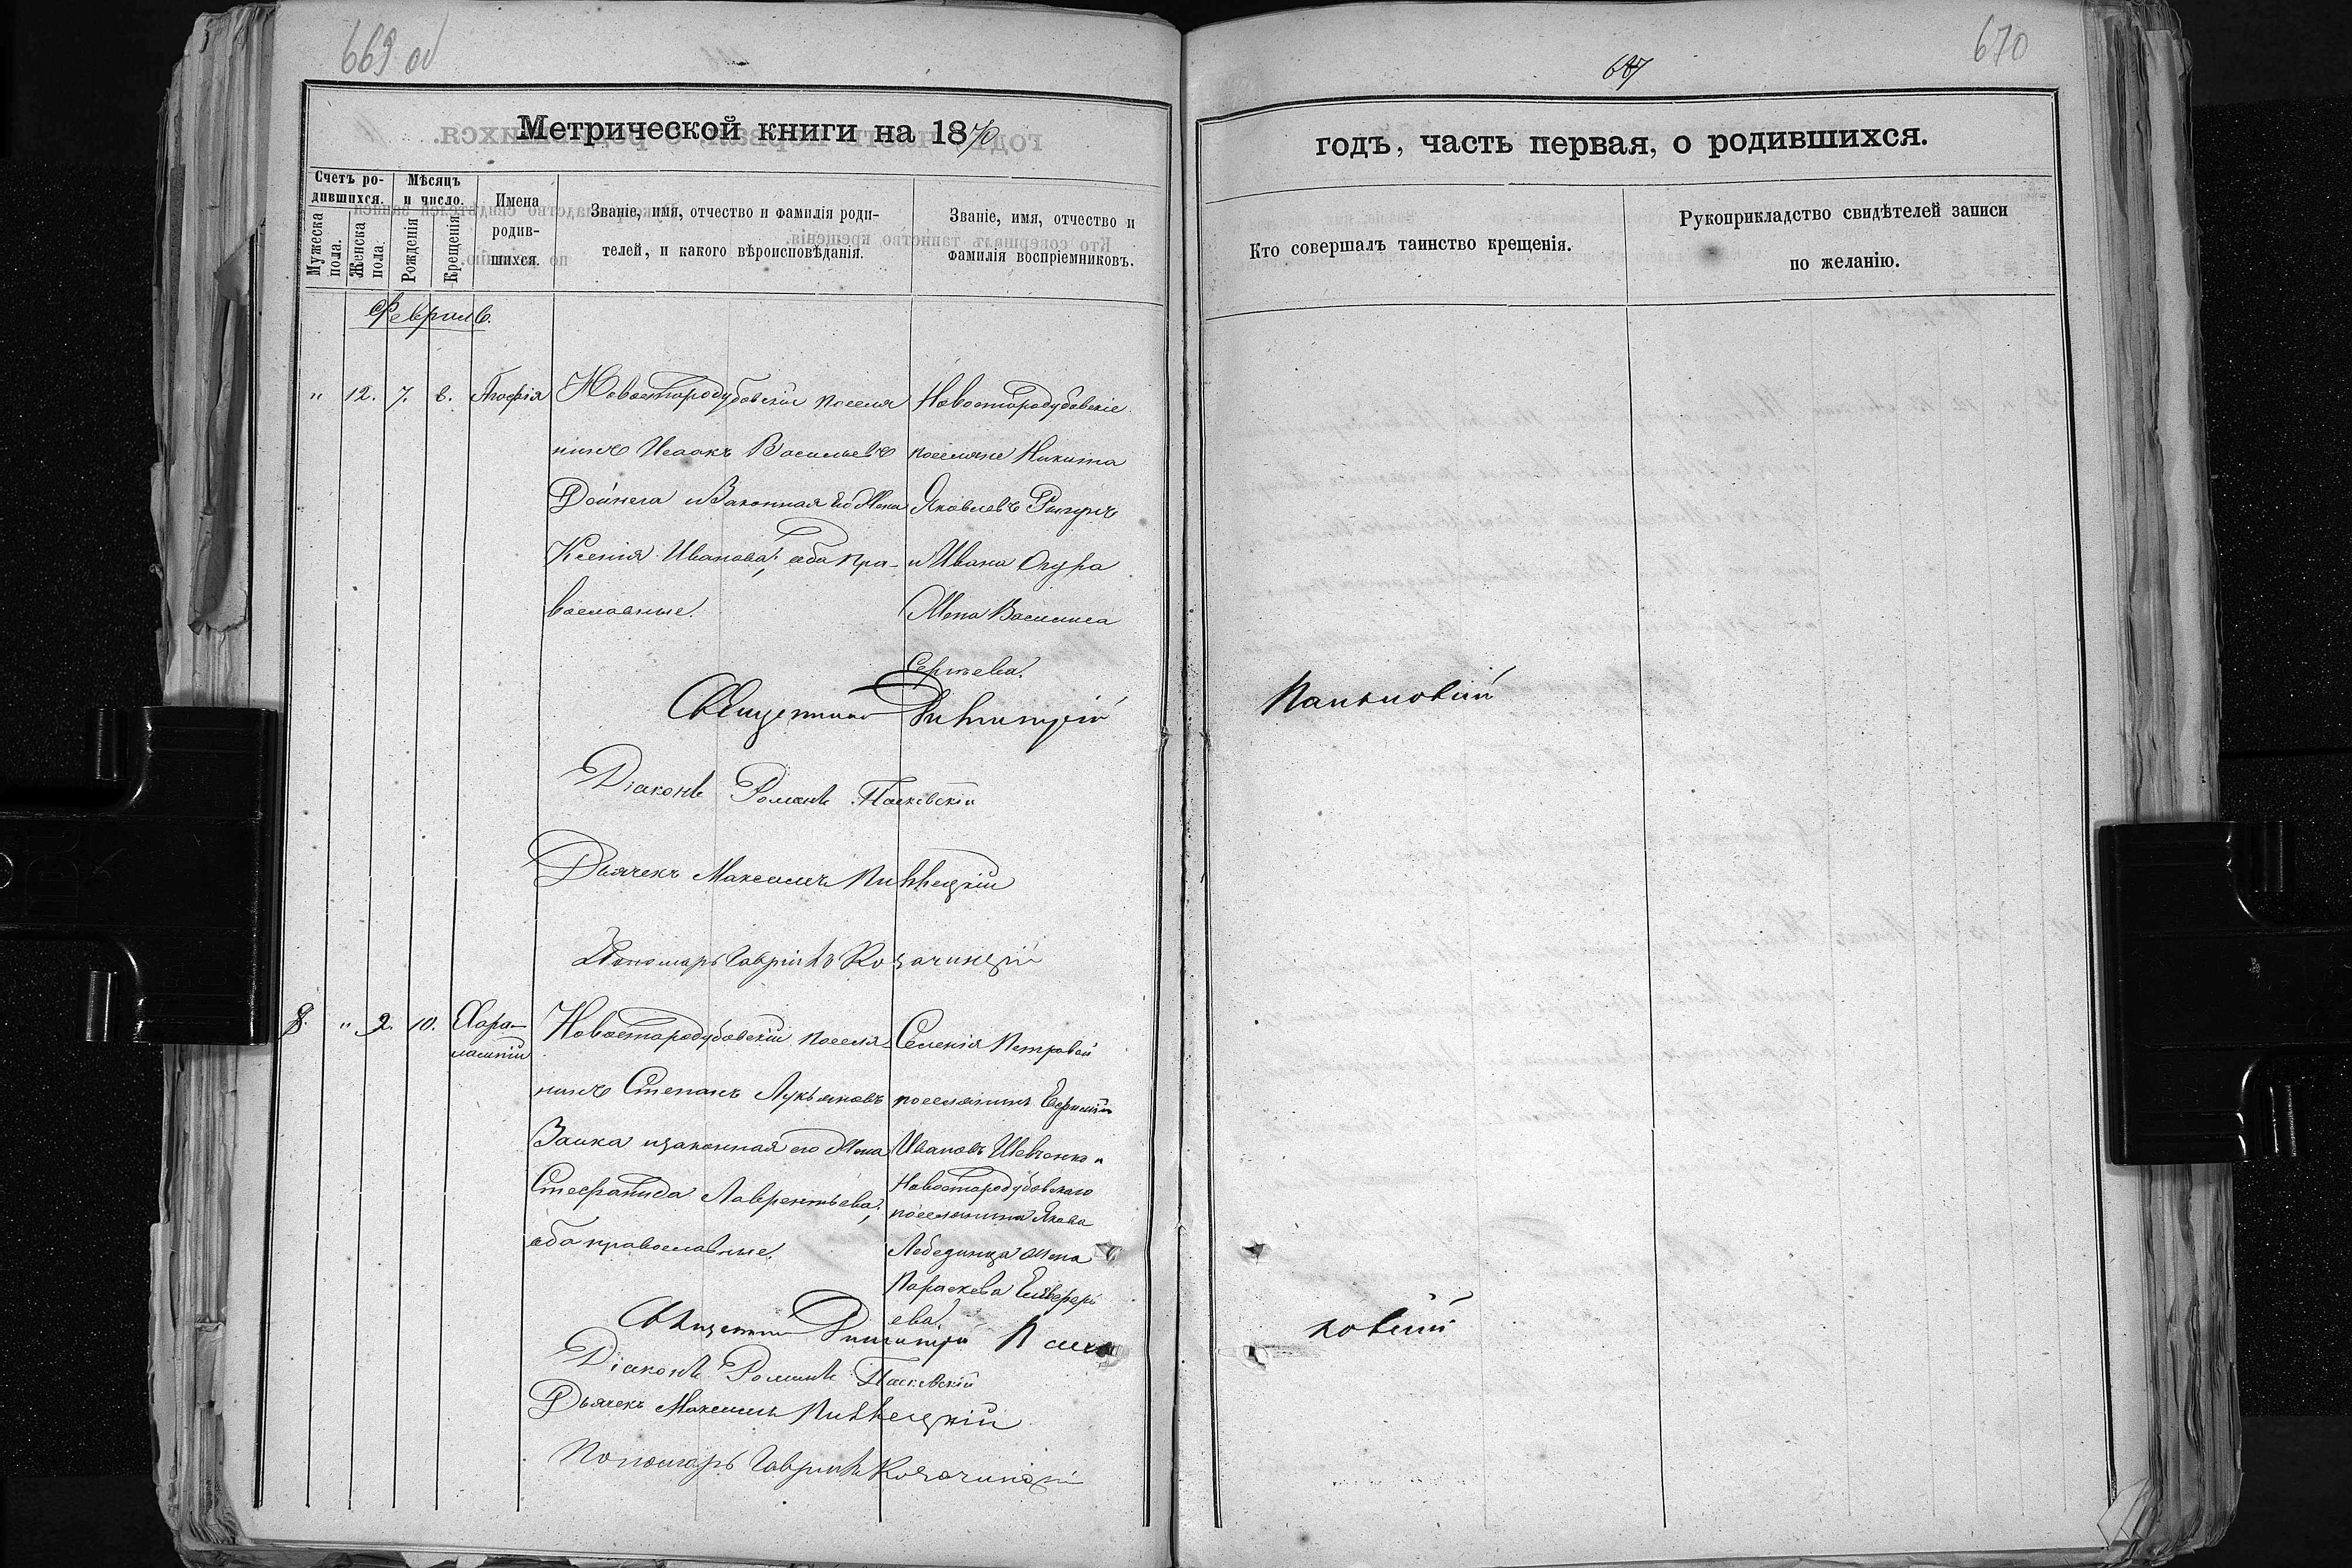 669 об
Метрической книги на 1870
Счетъ родившихся.
Мѣсяцъ и число.
Мужеска пола.
Женска пола.
Рожденія
Крещенія
Имена родив-
шихся.
Званіе, имя, отчество и фамилія роди-
телей, и какого вѣроисповѣданія.
Званіе, имя, отчество и
фамилія воспріемниковъ.
Февраль.
" 12. 7. 8.
Новостародубовскій поселя
нинъ Исаакъ Васильевъ
Дойнега и Законная его Жена
Ксенія Иванова; оба пра-
вославные.
Новостародубовскіе
поселяне Никита
Яковлевъ
и Ивана Огура
Жена Василиса
Сергѣева.
Священникъ Димитрій
Діаконъ Романъ Паскевскій
Дьячекъ Максимъ
Пономарь Гавріилъ Козачинскій
8. " 9. 10. Хара-
лампій
Новостародубовскій поселя-
нинъ Степанъ Лукьяновъ
Заика и законная его Жена
Стефанида Лаврентьева;
оба православные.
Селенія Петровой
поселянинъ
Ивановъ Шевченко и
Новостародубовскаго
поселянина Якова
Лебединца жена
Параскева
ева.
Священникъ Димитрій
Діаконъ Романъ Паскевскій
Дьячекъ Максимъ
Пономарь Гавріилъ Козачинскій
687
670
годъ, часть первая, о родившихся.
Кто совершалъ таинство крещенія.
Рукоприкладство свидѣтелей записи
по желанію.